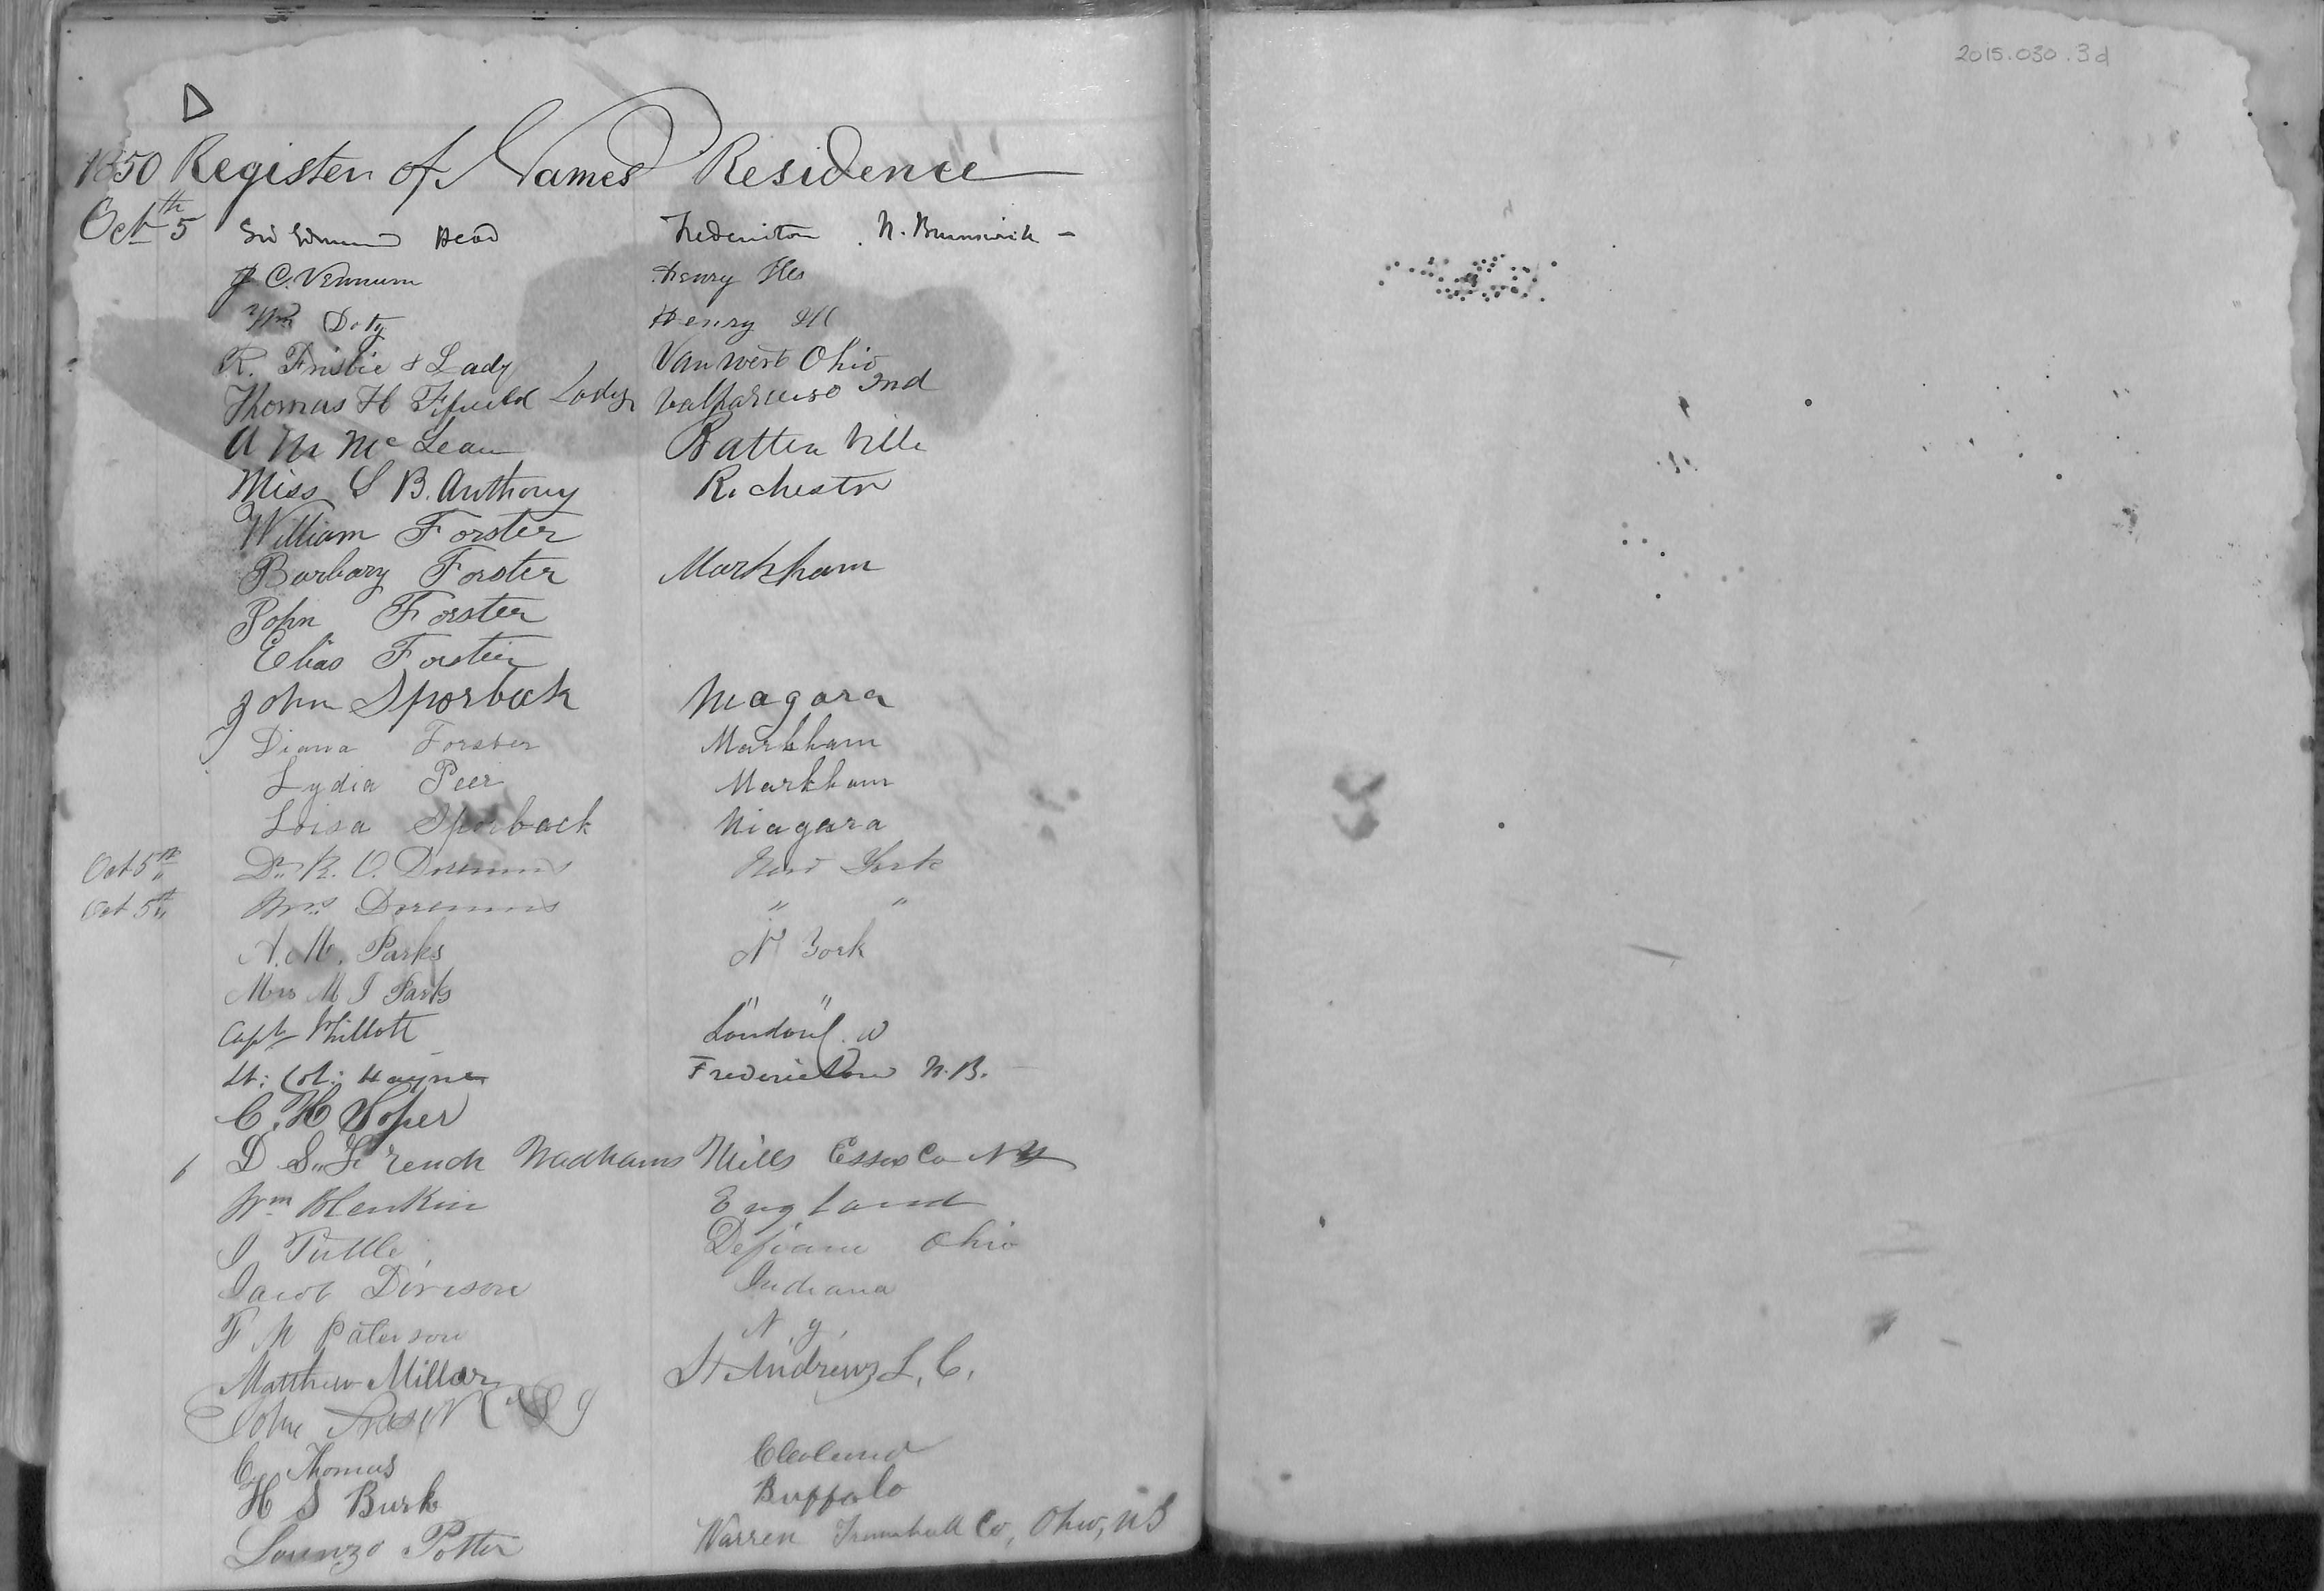 2015.030.3d
D
1850 Register of Names Residence
Oct 5th Sir Edmund Head Fredericton N. Brunswick -
J C. Vennum Henry Ills
Wm Doty Henry Ill
R. Frisbie & Lady Van wert Ohio
Thomas H Fifield Lady Valparaiso Ind
A M Mc Lean Batten Ville
Miss S B. Anthony Rochester
William Forster
Barbary Forster Markham
John Forster
Elias Forster
John Sporback Niagara
Diana Forster Markham
Lydia Peer Markham
Loisa Sporback Niagara
Oct 5th Dr. R. O. Doremus New York
Oct 5th Mrs. Doremus " "
A. M. Parks N York
Mrs M J Parks " "
Capt Phillott London C. W
Lt: Col: Hayne Fredericton N.B.
C. H Soper
6 D S. French Wadhams Mills Essex Co NY
Wm Blenkin England
J Tuttle Defiance Ohio
Jacob Divison Indiana
F M Paterson N. Y,
Matthew Millar St Andrews L. C.
John
C. Thomas Cleveland
H S Burk Buffalo
Lorenzo Potter Warren Trumbull Co, Ohio,